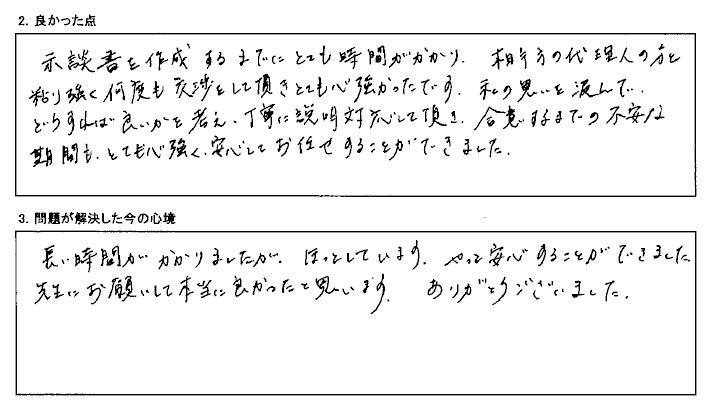 2. 良かった点
示談書を作成するまでにとても時間がかかり、相手方の代理人の方と
粘り強く何度も交渉をして頂きとても心強かったです。私の思いを汲んで、
どうすれば良いかを考え、丁寧に説明対応して頂き、合意するまでの不安な
期間も、とても心強く、安心してお任せすることができました。
3. 問題が解決した今の心境
長い時間がかかりましたが、ほっとしています。やっと安心することができました。
先生にお願いして本当に良かったと思います。ありがとうございました。